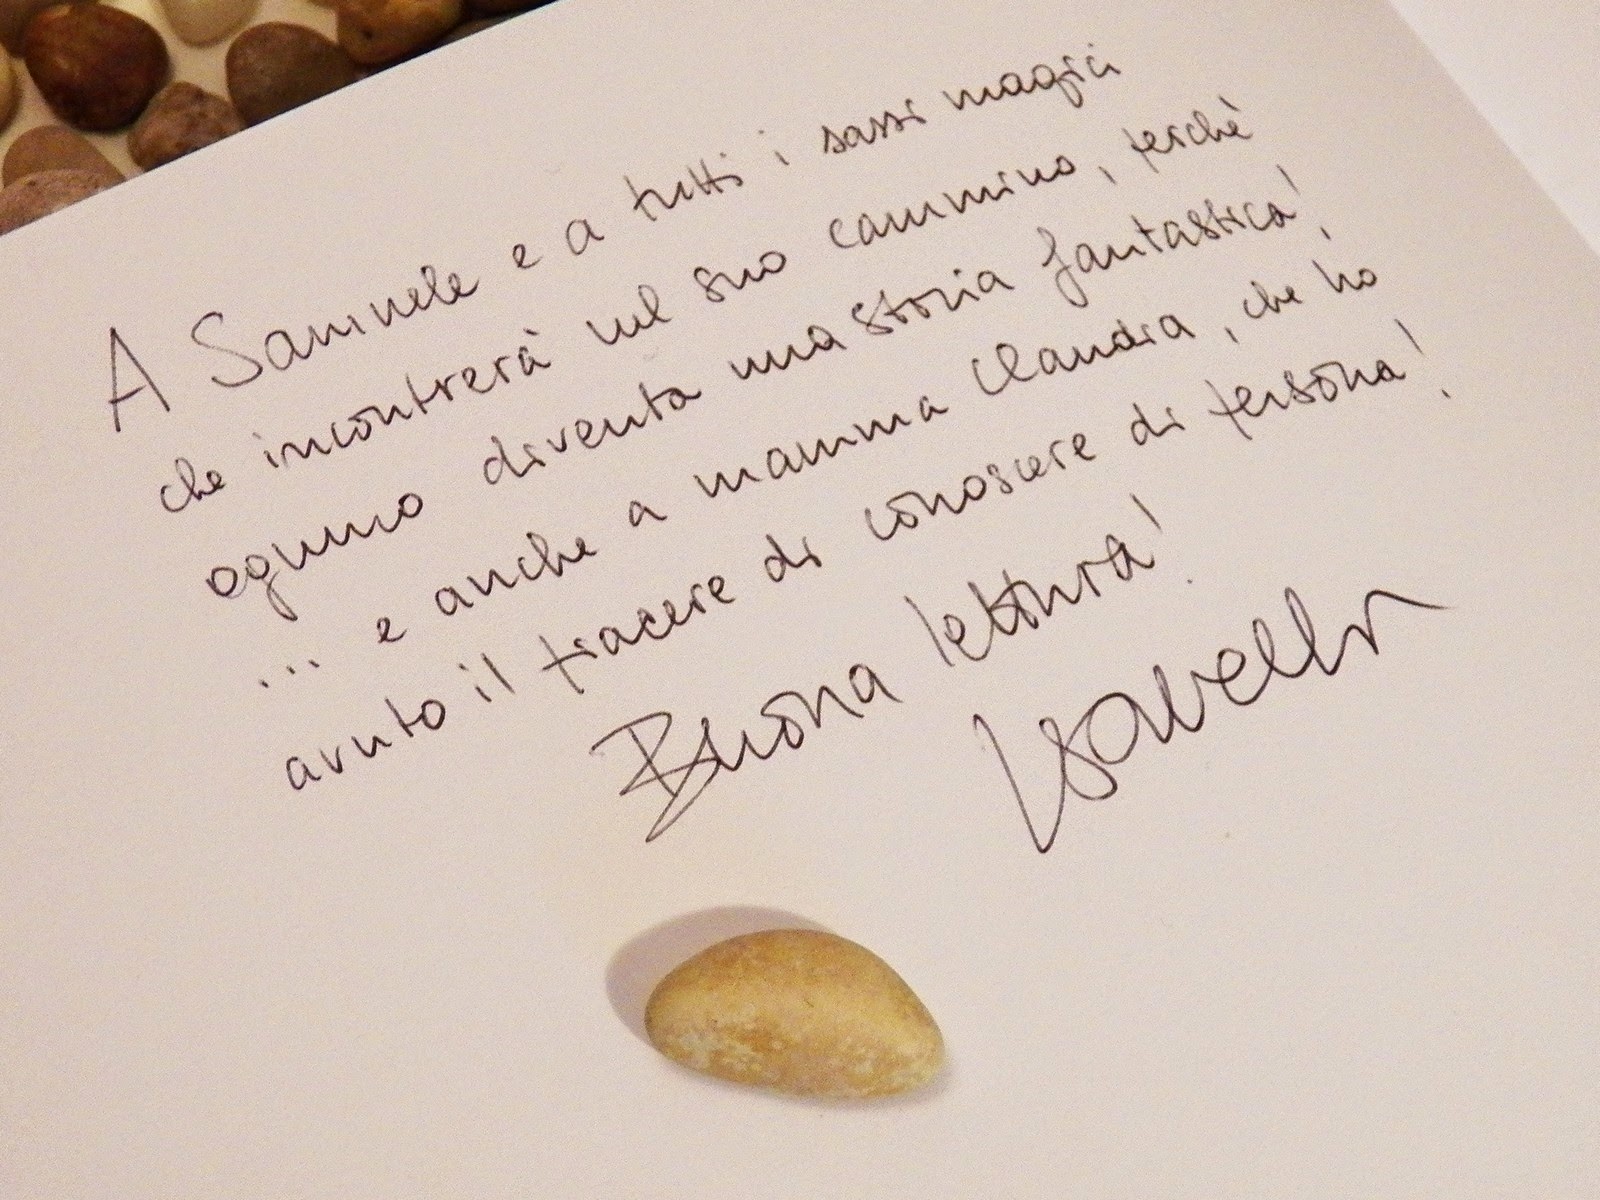 A Samuele e a tutti i sassi magici
che incontrerà nel suo cammino, perchè
ognuno diventa una storia fantastica!
... e anche a mamma Claudia, che ho
avuto il piacere di conoscere di persona!
Buona lettura!
Isabella